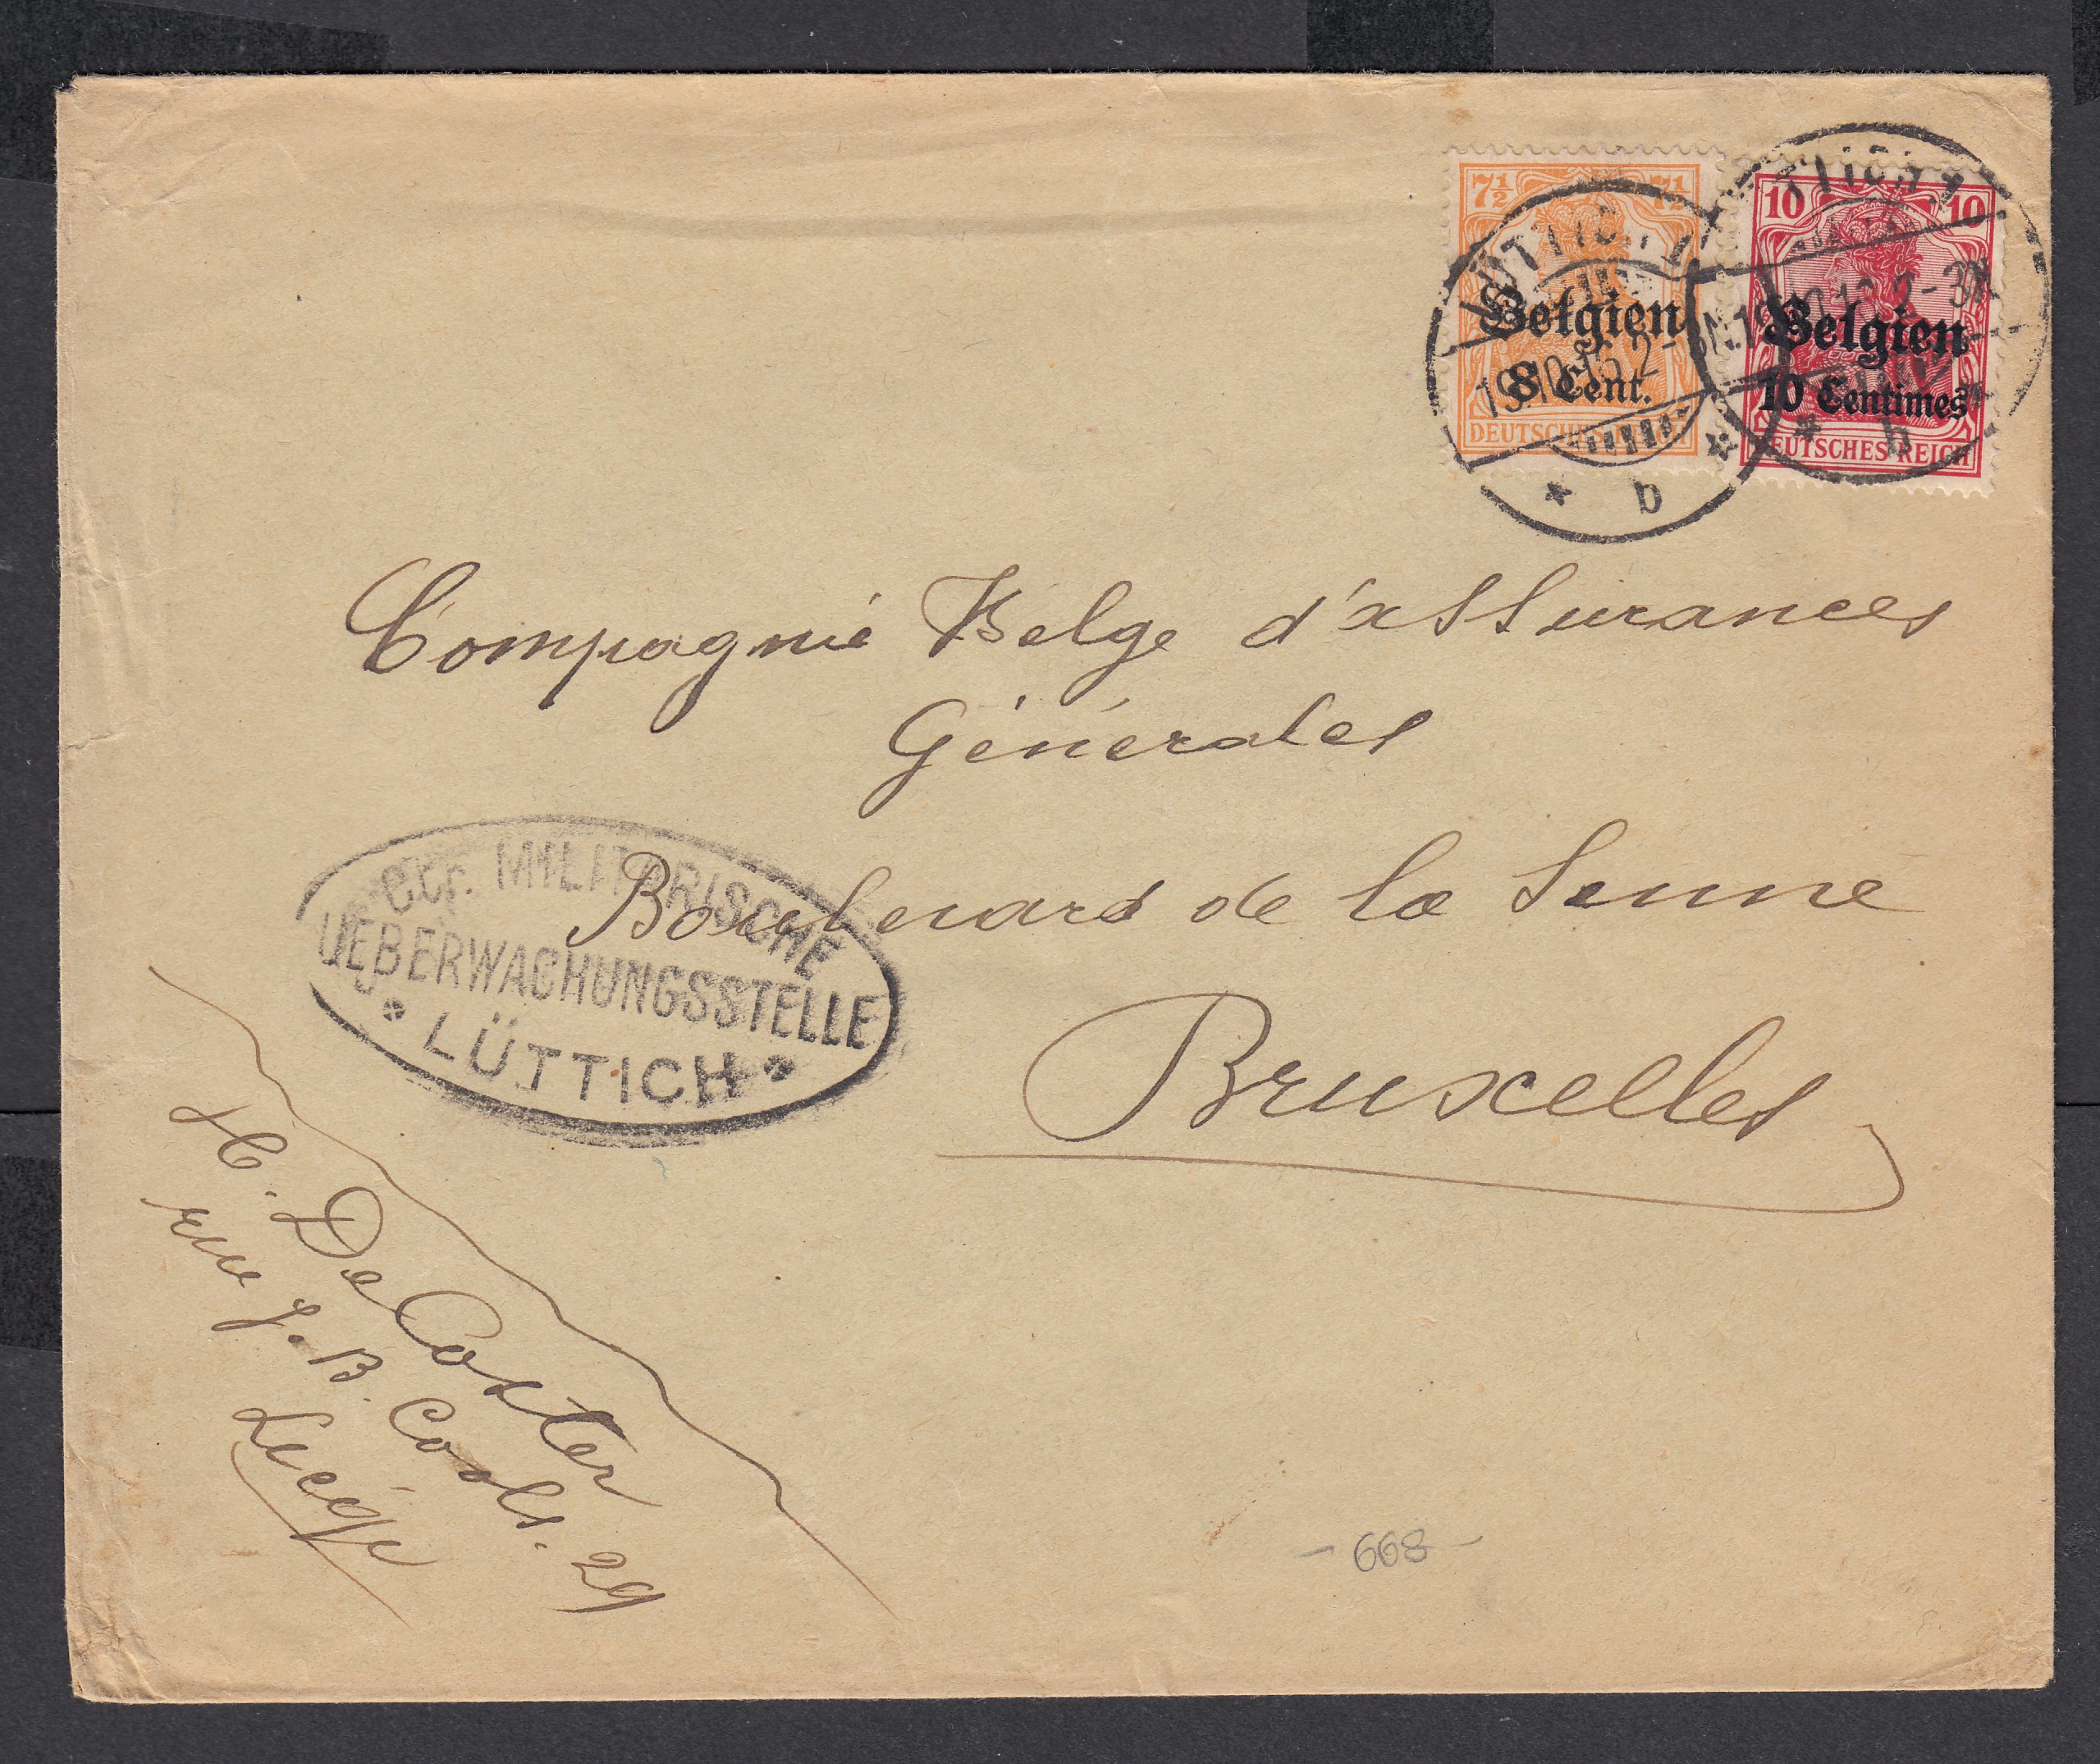 7½ 7½
Belgien
8 Cent.
DEUTSCHES
10 10
Belgien
10 Centimes
DEUTSCHES REICH
LÜTTICH
19.10.16.2-
* b
Compagnie Belge d'assurances
Générales
Boulevard de la Senne
Bruxelles
MILITÄRISCHE
UEBERWACHUNGSSTELLE
* LÜTTICH *
H. De Coster
rue J. B. Cools. 29
Liége
- 668 -